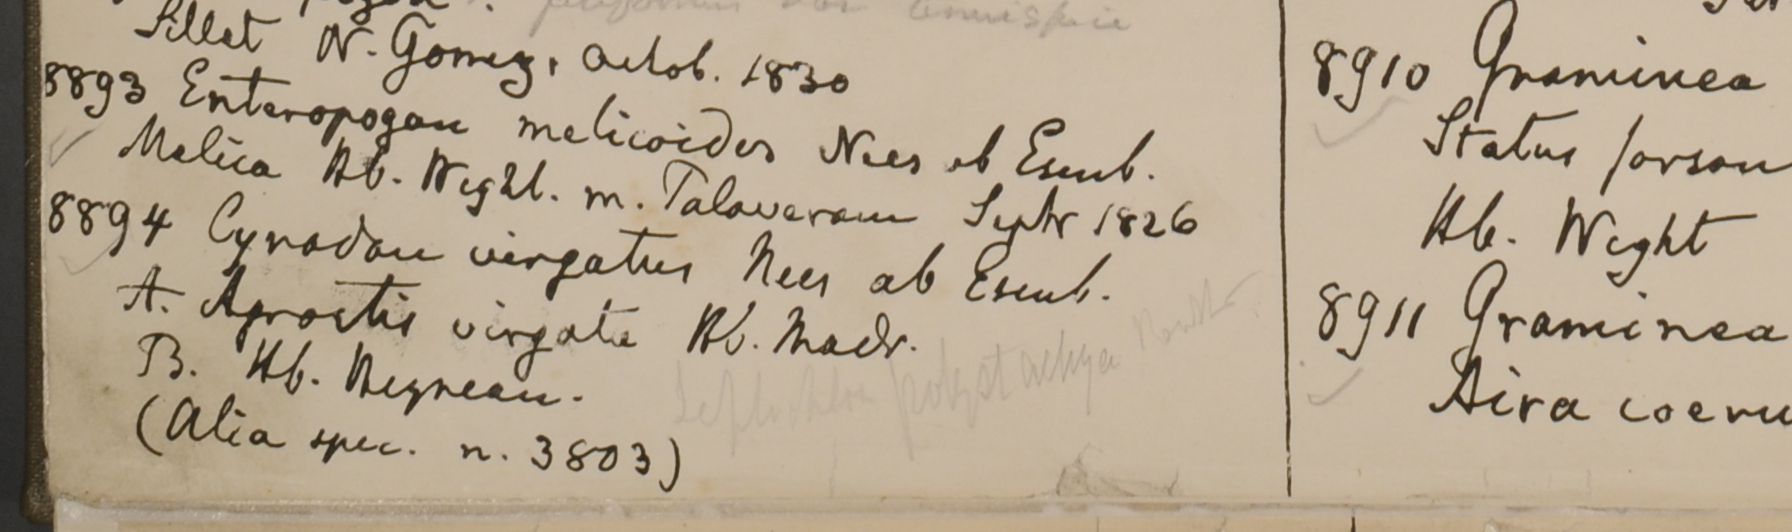 Sillet N. Gomez, Octob. 1830
8893 Enteropogon melicoides Nees ab Esenb.
Melica Hb. Wight. m. Talaveram Septr 1826
8894 Cynodon virgatus Nees ab Esenb.
A. Agrostis virgata Hb. Madr.
B. Hb. Heynean.
Leptochloa polystachya
(Alia spec. n. 3803)
8910 Graminea
Status forsan
Hb. Wight
8911 Graminea
Aira coeru